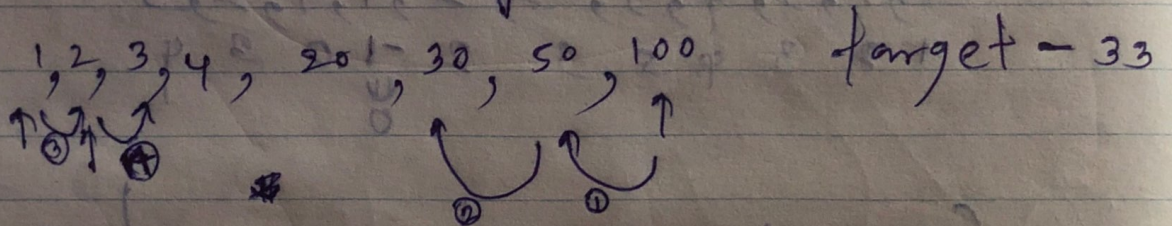 1, 2, 3, 4, 20, 30, 50, 100 target - 33
③ ④ ② ①